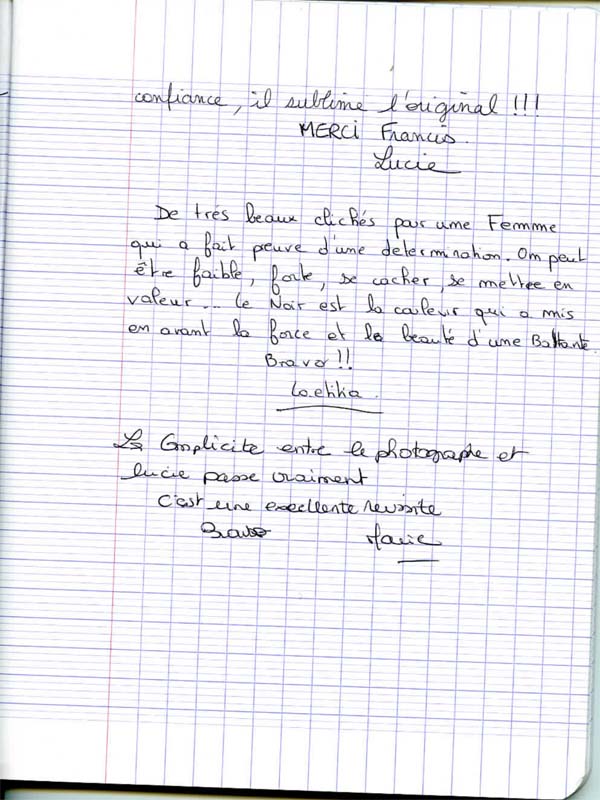 confiance, il sublime l'original !!!
MERCI Francis.
Lucie
De très beaux clichés pour une Femme
qui a fait preuve d'une determination. On peut
être faible, forte, se cacher, se mettre en
valeur... Le Noir est la couleur qui a mis
en avant la force et la beauté d'une Battante.
Bravo !!
Laetitia.
La Complicite entre le photographe et
lucie passe vraiment
C'est une excellente reussite
Bravo Marie